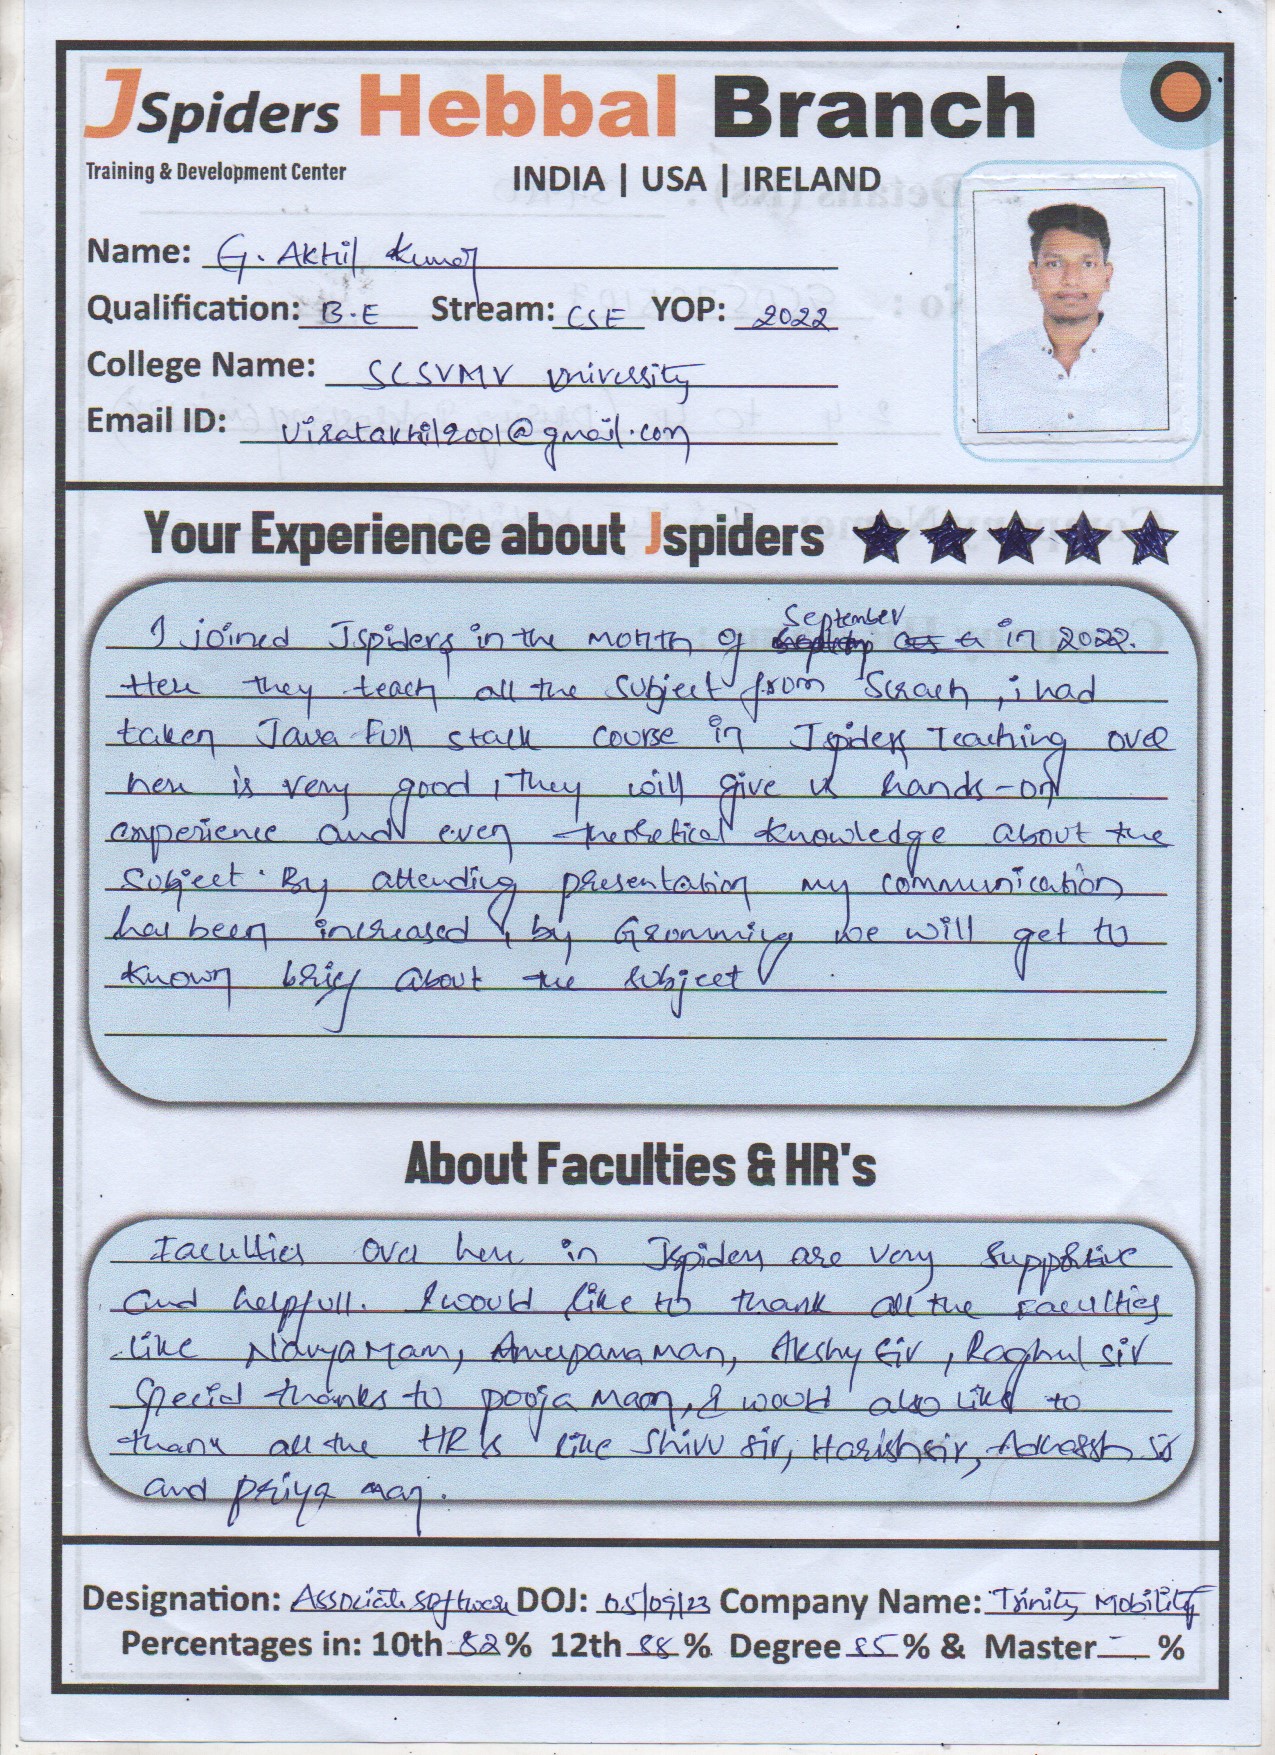 JSpiders Hebbal Branch
Training & Development Center
INDIA | USA | IRELAND
Name: G. Akhil Kumar
Qualification: B.E Stream: CSE YOP: 2022
College Name: SCSVMV University
Email ID: viratakhil2001@gmail.com
Your Experience about Jspiders
September
I joined Jspiders in the month of in 2022.
Here they teach all the subject from Scrach, i had
taken Java Full stack course in Jspiders Teaching over
here is very good, they will give us hands-on
experience and even theoretical knowledge about the
subject. By attending presentation my communication
has been increased, by Gromming we will get to
known brief about the subject
About Faculties & HR's
Faculties over here in Jspiders are very supportive
and helpfull. I would like to thank all the Faculties
like Navya Mam, Anupama mam, Akshy Sir, Raghul sir
Special thanks to pooja Mam, I would also like to
thank all the HR's like Shivu sir, Harish sir, Adharsh sir
and priya mam.
Designation: Associate software DOJ: 05/09/23 Company Name: Trinity Mobility
Percentages in: 10th 82% 12th 88% Degree 85% & Master - %